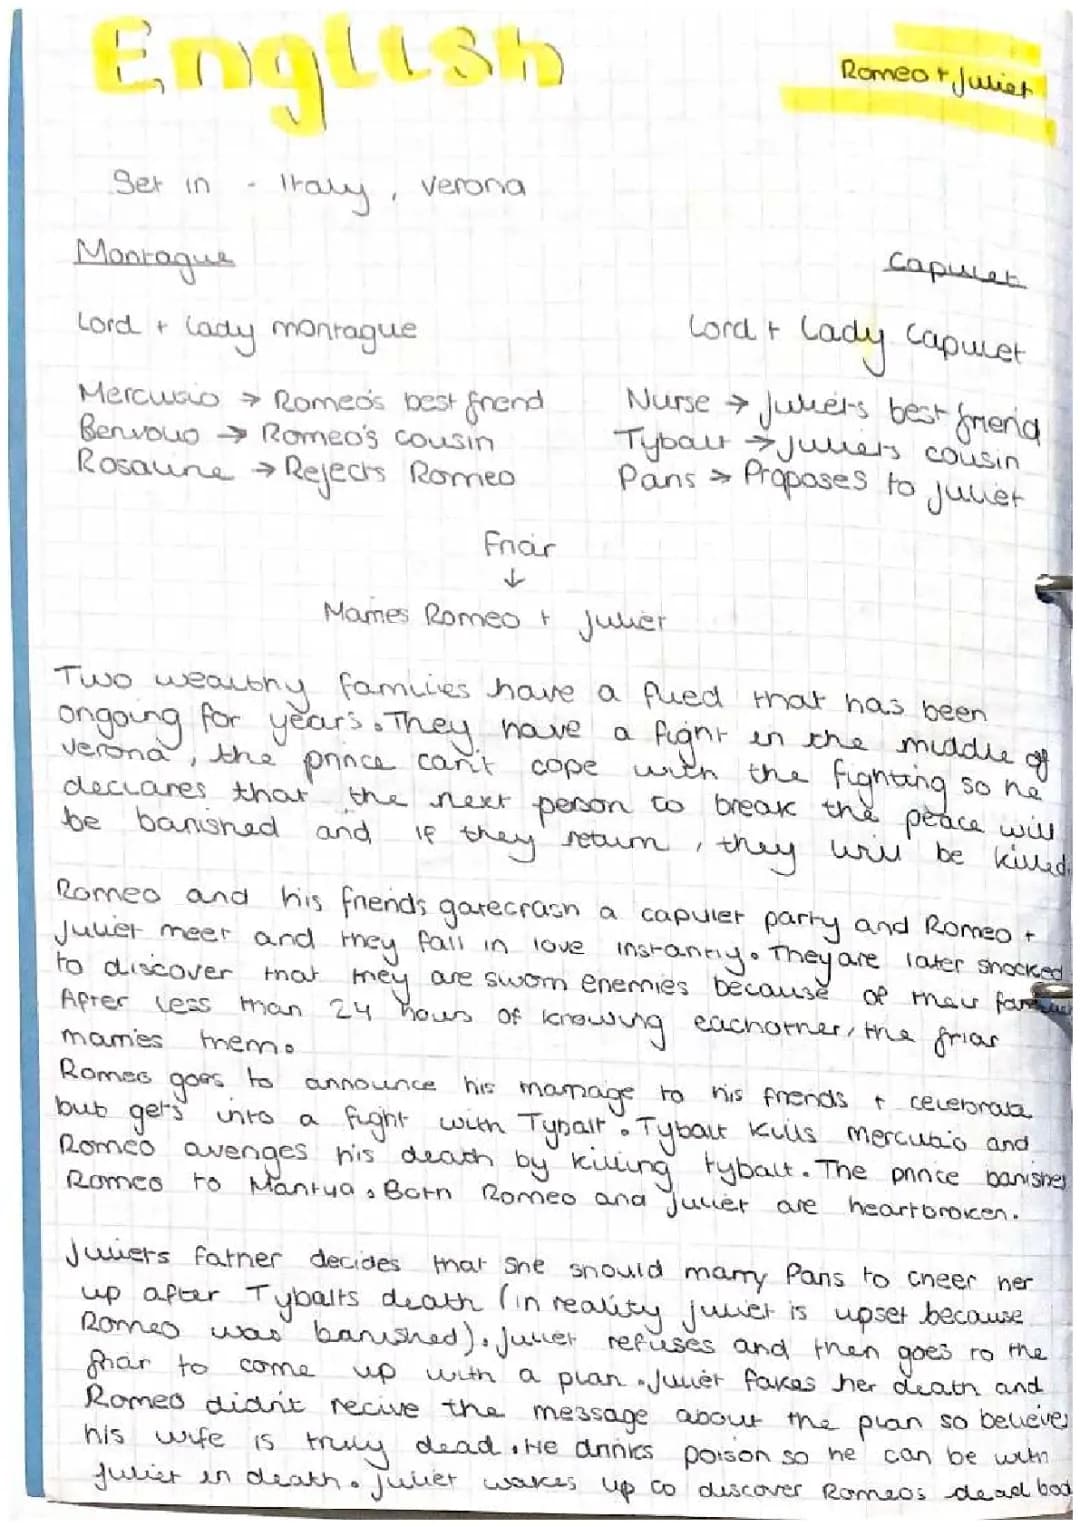 English
Romeo + Juliet
Set in - Italy, Verona
Montague
Capulet
Lord + Lady montague
Lord + Lady Capulet
Mercutio → Romeo's best friend
Nurse → Juliet's best friend
Benvolio → Romeo's cousin
Tybalt → Juliets cousin
Rosaline → Rejects Romeo
Paris → Proposes to Juliet
Friar
↓
Marries Romeo + Juliet
Two wealthy families have a fued that has been
ongoing for years. They have a fight in the middle of
verona, the prince can't cope with the fighting so he
declares that the next person to break the peace will
be banished and if they return, they will be killed.
Romeo and his friends gatecrash a capulet party and Romeo +
Juliet meet and they fall in love instantly. They are later shocked
to discover that they are sworn enemies because of their
After less than 24 hours of knowing eachother, the friar
marries them.
Romeo goes to announce his marriage to his friends + celebrate
but gets into a fight with Tybalt. Tybalt kills mercutio and
Romeo avenges his death by killing tybalt. The prince banishes
Romeo to Mantua. Both Romeo and Juliet are heartbroken.
Juliets father decides that she should marry Paris to cheer her
up after Tybalts death (in reality Juliet is upset because
Romeo was banished). Juliet refuses and then goes to the
friar to come up with a plan. Juliet fakes her death and
Romeo didn't recive the message about the plan so believes
his wife is truly dead. He drinks poison so he can be with
Juliet in death. Juliet wakes up to discover Romeos dead bod